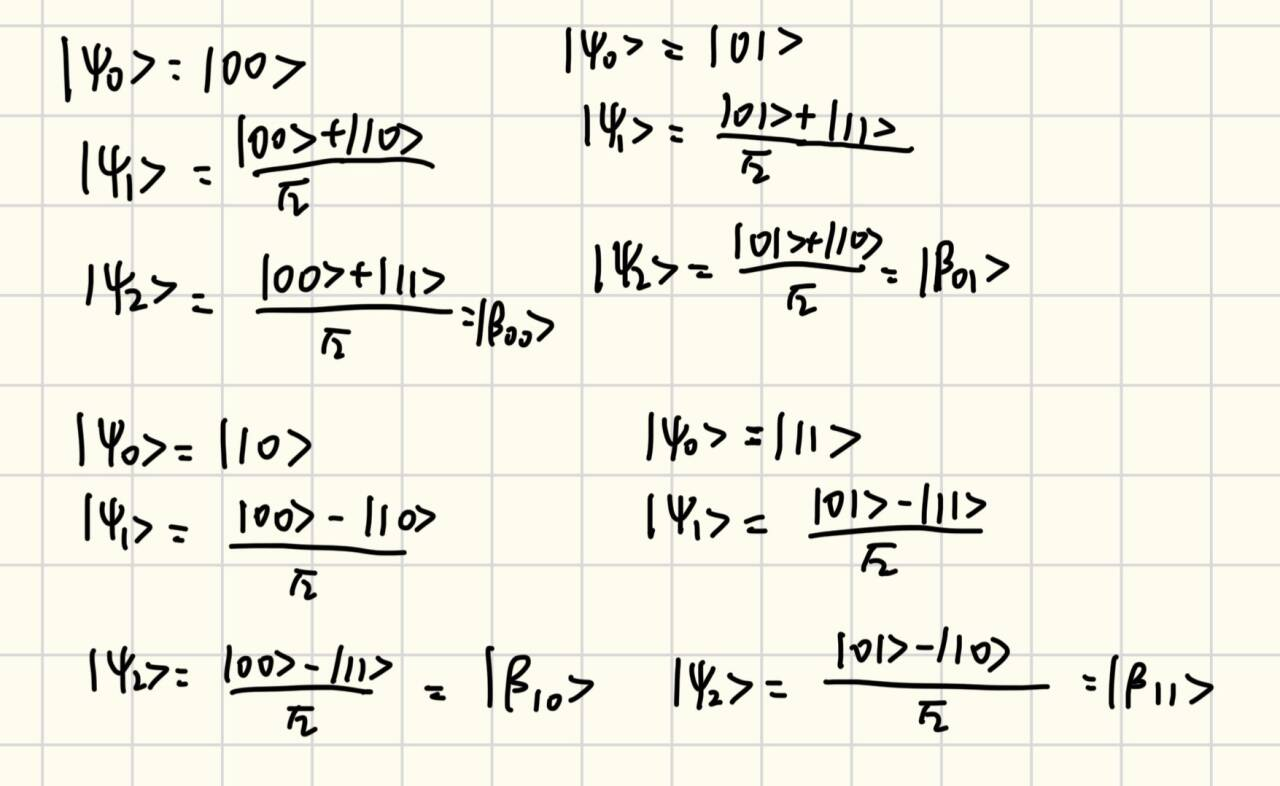 |ψ₀> = |00>
|ψ₁> = (|00>+|10>)/√2
|ψ₂> = (|00>+|11>)/√2 = |β₀₀>
|ψ₀> = |01>
|ψ₁> = (|01>+|11>)/√2
|ψ₂> = (|01>+|10>)/√2 = |β₀₁>
|ψ₀> = |10>
|ψ₁> = (|00>-|10>)/√2
|ψ₂> = (|00>-|11>)/√2 = |β₁₀>
|ψ₀> = |11>
|ψ₁> = (|01>-|11>)/√2
|ψ₂> = (|01>-|10>)/√2 = |β₁₁>